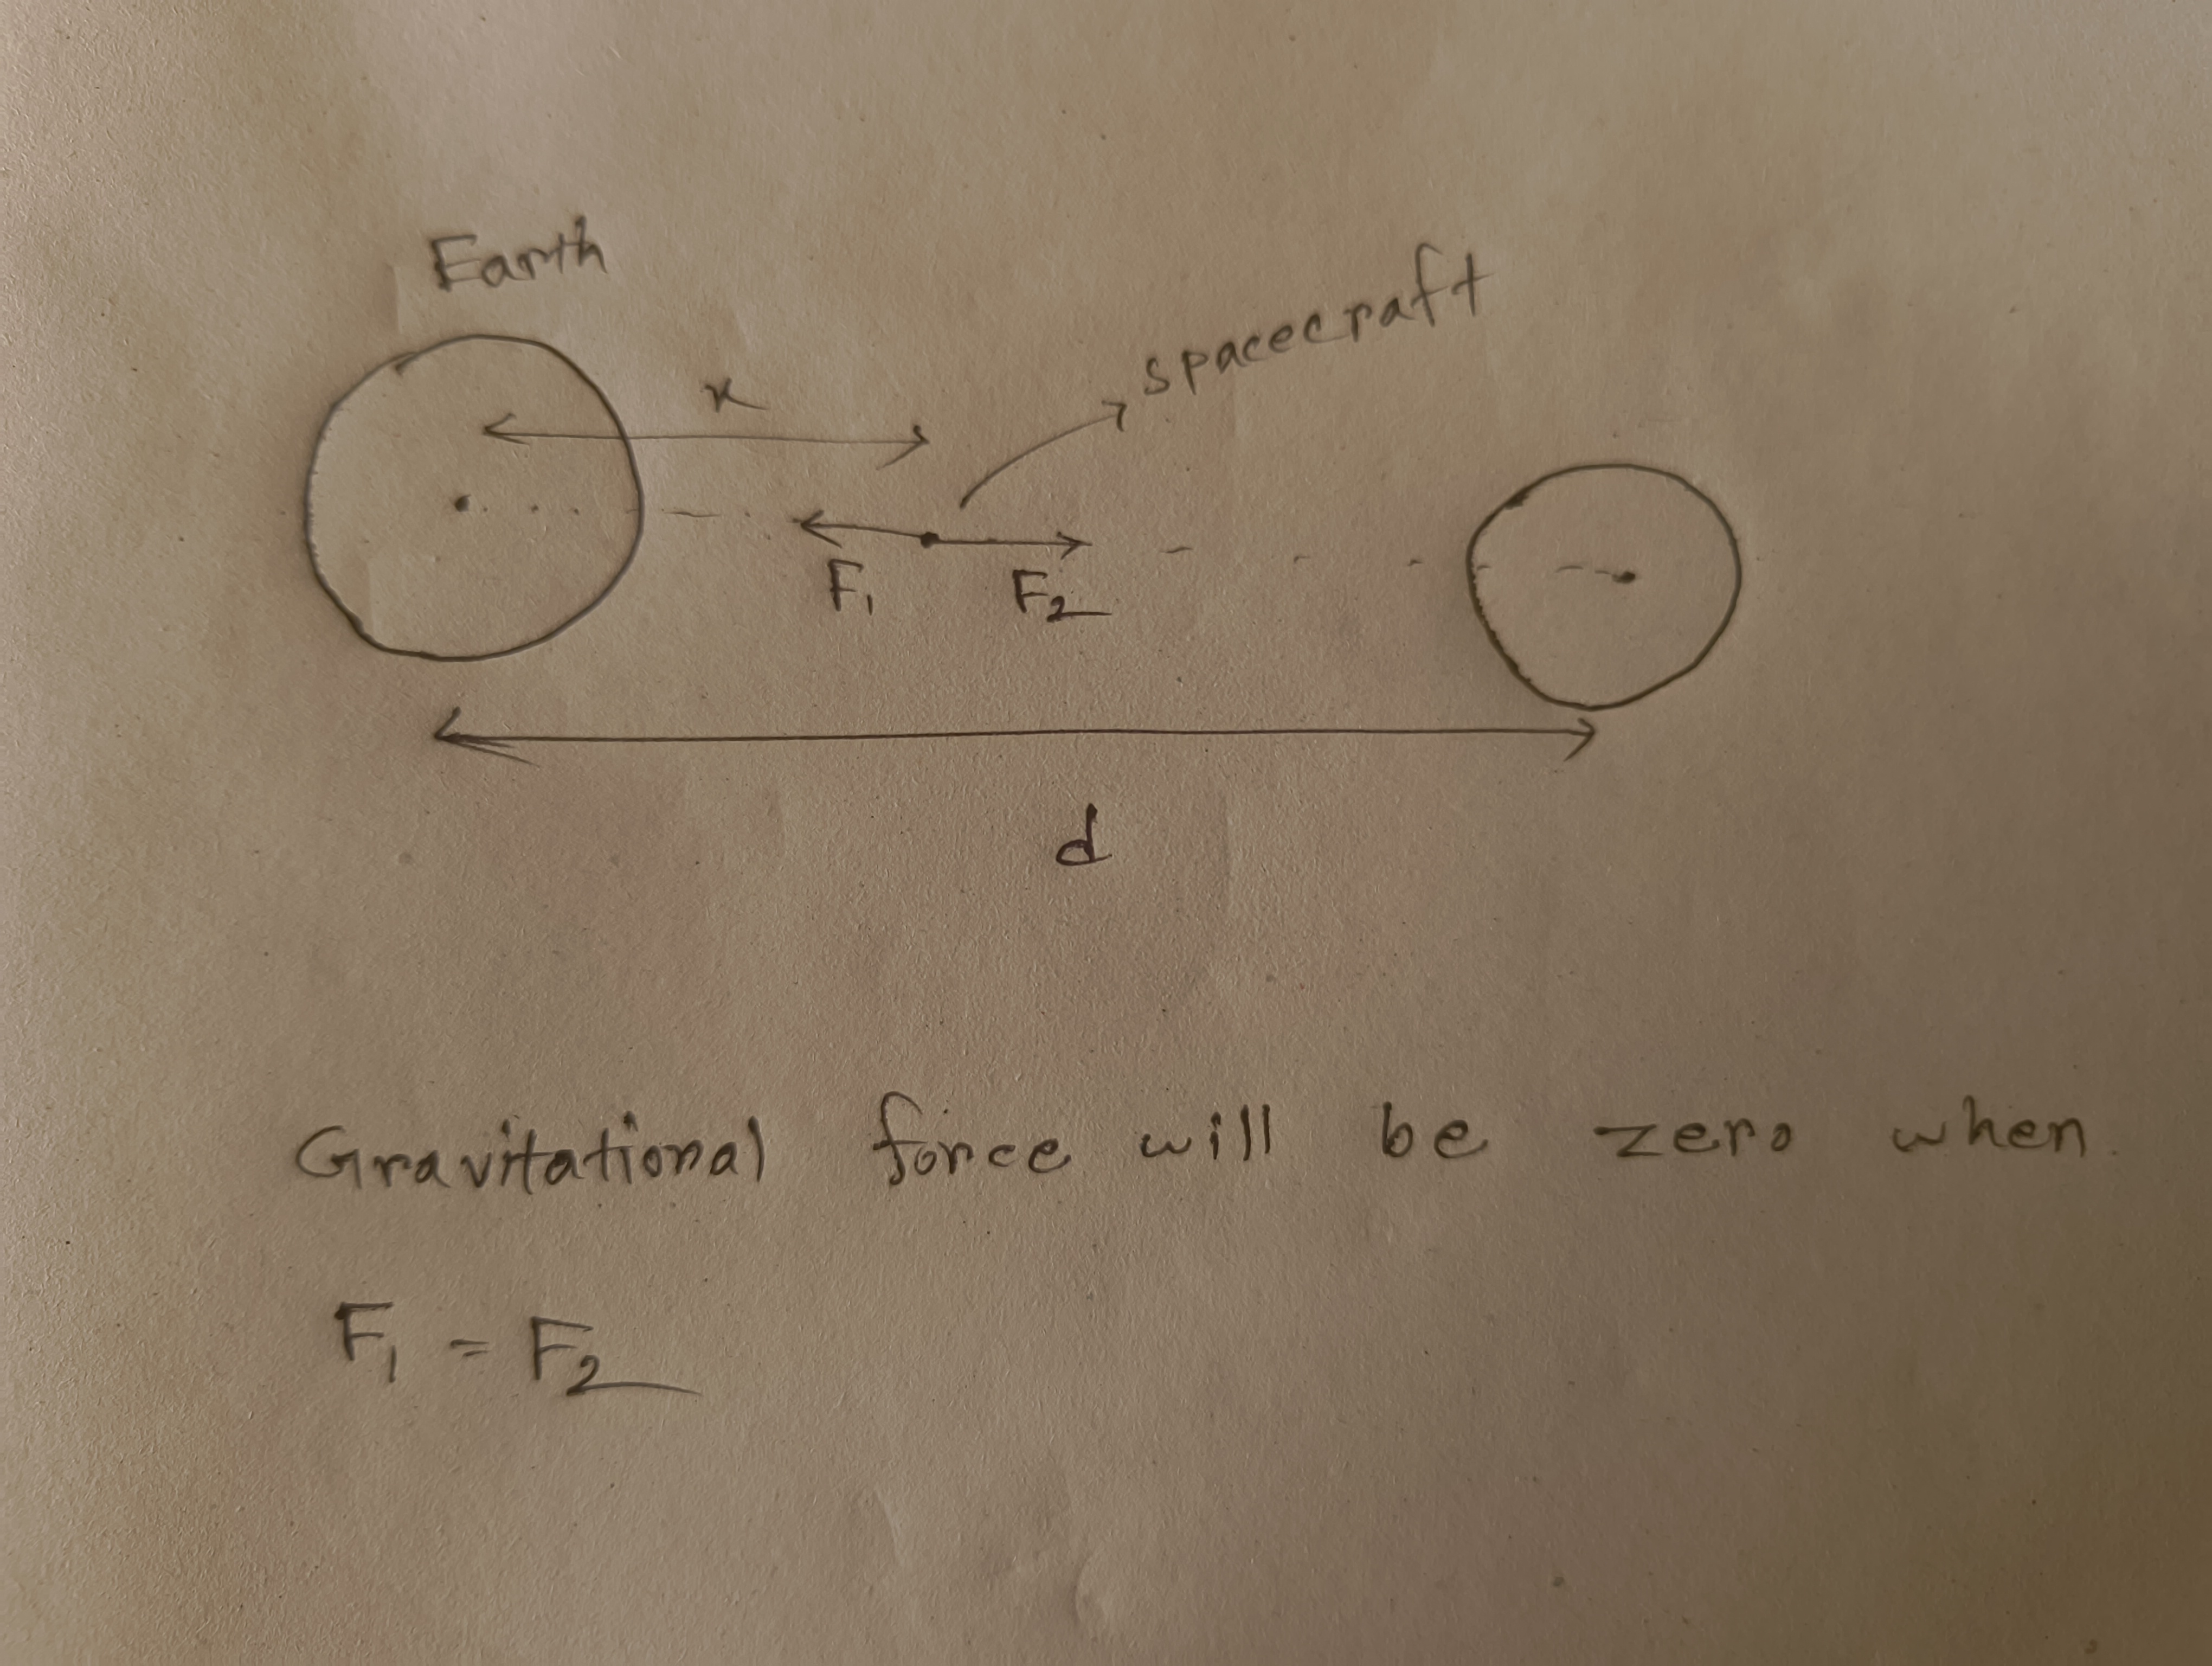 Earth
spacecraft
x
F₁ F₂
d
Gravitational force will be zero when
F₁ = F₂